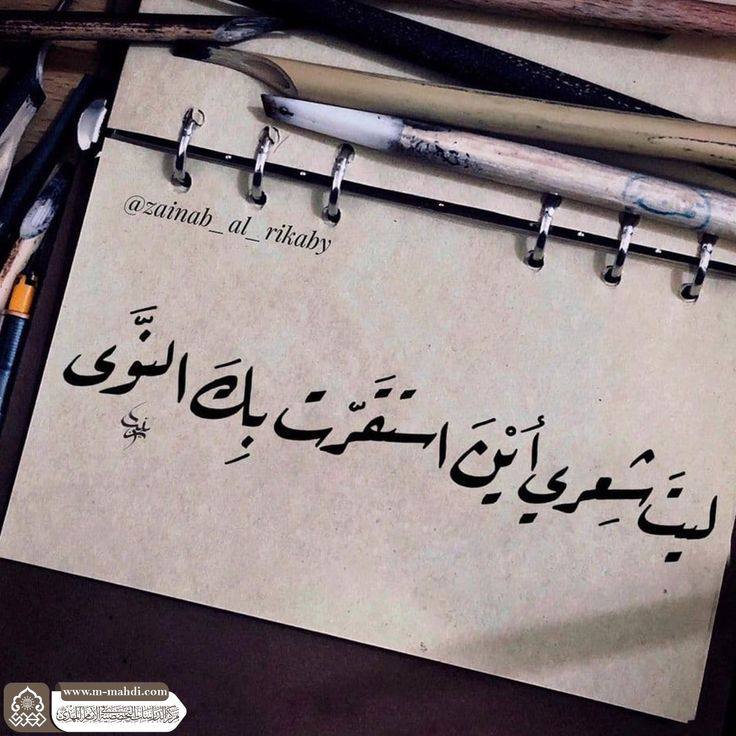 @zainab_al_rikaby
ليتَ شِعري أَيْنَ استَقَرّت بِكَ النَّوى
زينب
www.m-mahdi.com
مركز الدراسات التخصصية في الإمام المهدي